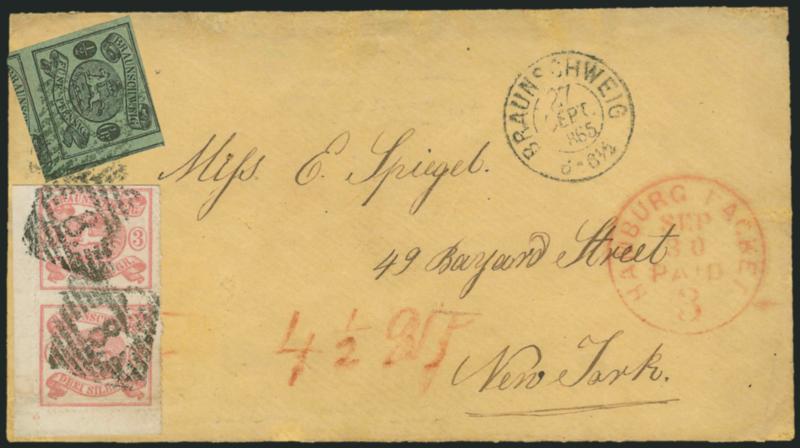 BRAUNSCHWEIG
FÜNF
BRAUNSCHWEIG
27
SEPT.
1865
6-6½
Miss. E. Spiegel.
3
HAMBURG PACKET
SEP
30
PAID
3
49 Bayard Street
4 ½
8
DREI SILB
New York.